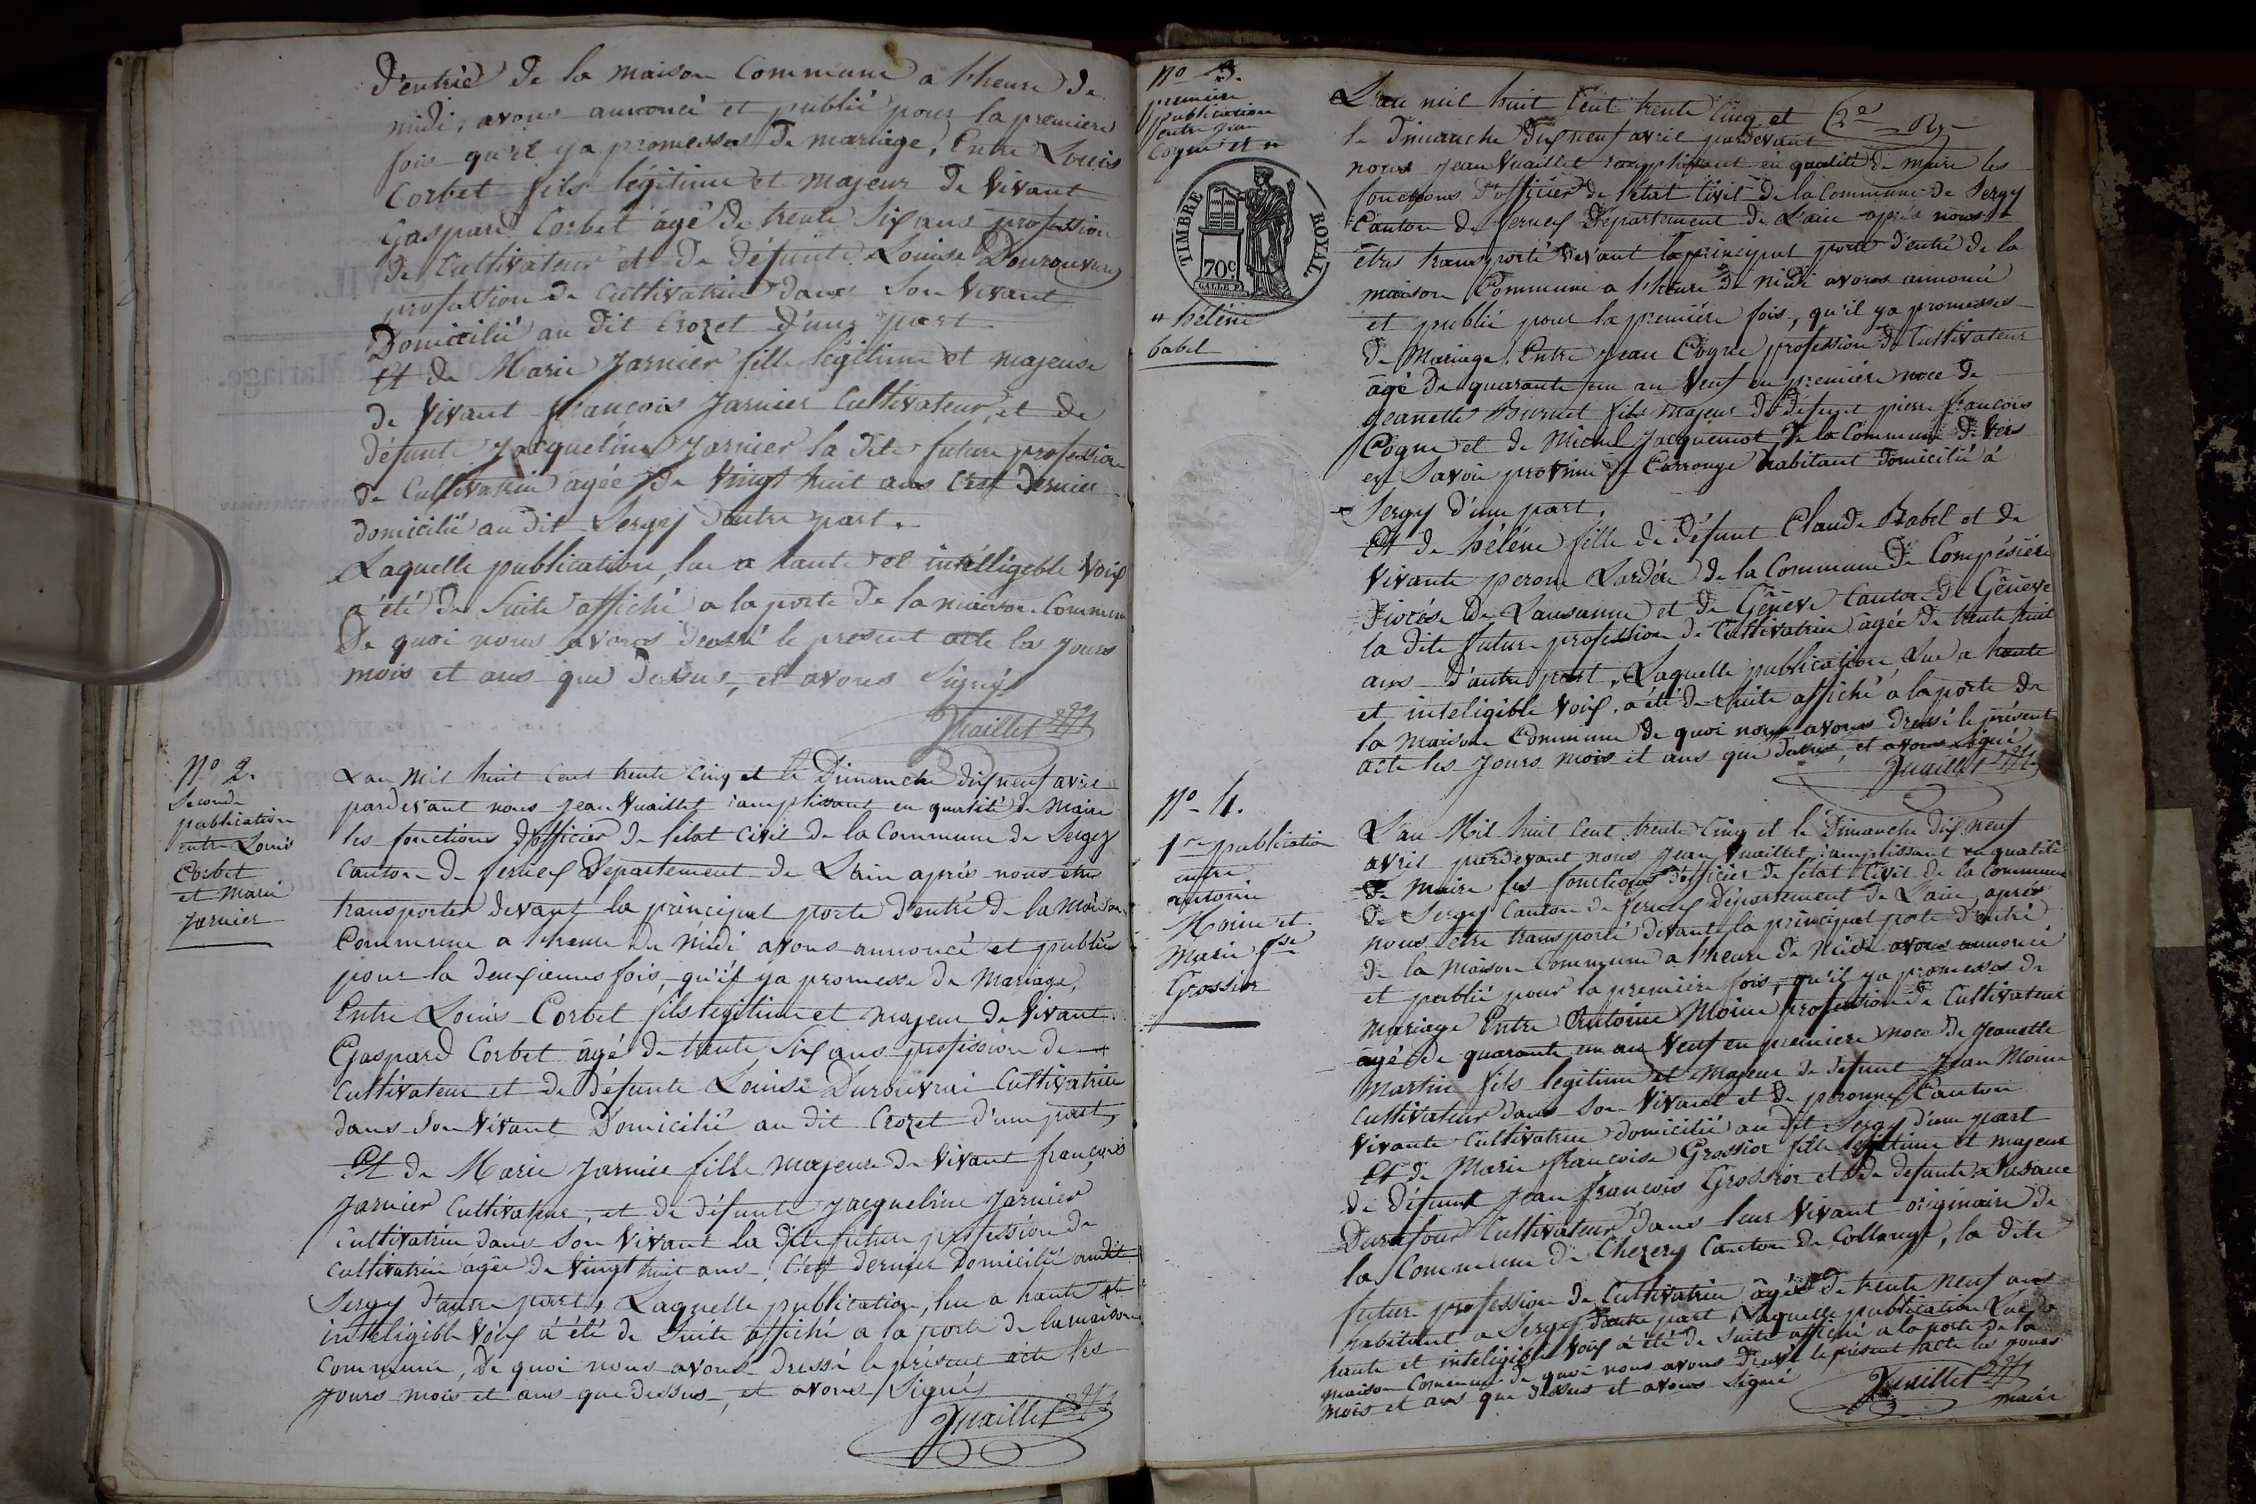 d'entrée de la maison Commune a l'heure de
midi, avons annoncé et publié pour la premiere
fois qu'il y a promesses de mariage, Entre Louis
Corbet fils légitime et majeur de vivant
Gaspard Corbet âgé de trente Six ans profession
de Cultivateur et de défunte Louise
profession de cultivatrice dans Son vivant
Domicilié au dit Crozet d'une part
Et de Marie Jarnier fille légitime et majeure
de vivant françois Jarnier Cultivateur, et de
défunte Jacqueline Jarnier la dite future profession
de Cultivatrice agée de vingt huit ans Cest dernier
domicilié au dit Sergy d'autre part.
Laquelle publication, lue a haute et intélligible voix
a été de Suite affiché a la porte de la maison Commune
De quoi nous avons dressé le present acte les jours
mois et ans que dessus, et avons Signé
Jvuaillet
N° 2.
Seconde
publication
entre Louis
Corbet
et Marie
Jarnier
L'an Mil huit cent trente Cinq et le Dimanche dix neuf avril
pardevant nous Jean Vuaillet ramplissant en qualité de Maire
les fonctions d'officier de l'état Civil de la Commune de Sergy
Canton de fernex Département de L'ain après nous être
transporter devant la principal porte d'entré de la Maison
Commune a l'heure de Midi avons annoncé et publié
pour la deuxiemes fois, qu'il y a promesse de Mariage,
Entre Louis Corbet fils legitime et majeur de vivant
Gaspard Corbet âgé de trente Six ans profession de
Cultivateur et de défunte Louise Durouvrai Cultivatrice
dans Son vivant Domicilié au dit Crozet d'une part,
Et de Marie Jarnier fille majeure de vivant françois
Jarnier Cultivateur, et de défunte Jacqueline Jarnier
Cultivatrice dans Son vivant la dite future profession de
Cultivatrice âgée de vingt huit ans, C'est dernier Domicilié audit
Sergy d'autre part, Laquelle publication, lue a haute et
inteligible voix à été de Suite affiché a la porte de la maison
Commune, De quoi nous avons dressé le présent acte les
jours mois et ans que dessus, et avons Signés
Jvuaillet
N° 3.
première
publication
entre jean
Cogne et "
TIMBRE ROYAL
70 c.
" hélène
babel
L'an mil huit Cent trente Cinq et
le Dimanche dix neuf avril pardevant
nous Jean Vuaillet ramplissant en qualité de maire les
fonctions d'officier de l'état Civil de la Commune de Sergy
Canton de fernex Département de L'ain après nous
êtres transporté devant la principal porte d'entré de la
maison Commune a l'heure de midi avons annoncé
et publié pour la première fois, qu'il y a promesses
de Mariage, Entre Jean Cogne profession de Cultivateur
âgé de quarante un an veuf en première noce de
Jeanette Burnet fils majeur de défunt pierre françois
Cogne et de Michel Jacquemot, de la Commune de vers
en Savoie province de Carrouge habitant domicilié à
Sergy d'une part.
Et de hélène fille de défunt Claude Babel et de
vivante perone Lardéré de la Commune de Compésière
Diocése de Lausanne et de Gêneve Canton de Gêneve
la dite future profession de Cultivatrice agée de trente huit
ans d'autre part, Laquelle publication Lue a haute
et inteligible voix, a été de Suite affiché a la porte de
la Maison Commune de quoi nous avons dressé le présent
acte les jours mois et ans que dessus, et avons Signé
Jvuaillet
N° 4.
1re publication
entre
antoine
Moine et
Marie fse
Grossior
L'an Mil huit Cent trente Cinq et le Dimanche dix neuf
avril pardevant nous Jean Vuaillet ramplissant en qualité
de maire les fonctions d'officier de l'état Civil de la Commune
de Sergy Canton de fernex Département de L'ain, après
nous être transporté devant la principal porte d'entré
de la Maison Commune a l'heure de Midi avons annoncé
et publié pour la première fois, qu'il y a promesses de
mariage Entre Antoine Moine profession de Cultivateur
agé de quarante un an veuf en premiere noce de Jeanette
Martin fils legitime et majeur de défunt Jean Moine
Cultivateur dans Son vivant et de peronne Canton
vivante Cultivatrice domicilié au dit Sergy d'une part
Et de Marie françoise Grossior fille légitime et majeur
de défunt Jean françois Grossior et de defunte Susane
Durafour Cultivateur dans leur vivant originaire de
la Commune de Chezery Canton de Collonge, la dite
future profession de Cultivatrice âgée de trente neuf ans
habitant a Sergy d'autre part Laquelle publication Lue a
haute et inteligible voix à été de Suite affiché a la porte de la
maison Commune de quoi nous avons dressé le présent acte les jours
mois et ans que dessus et avons Signé
Jvuaillet
maire